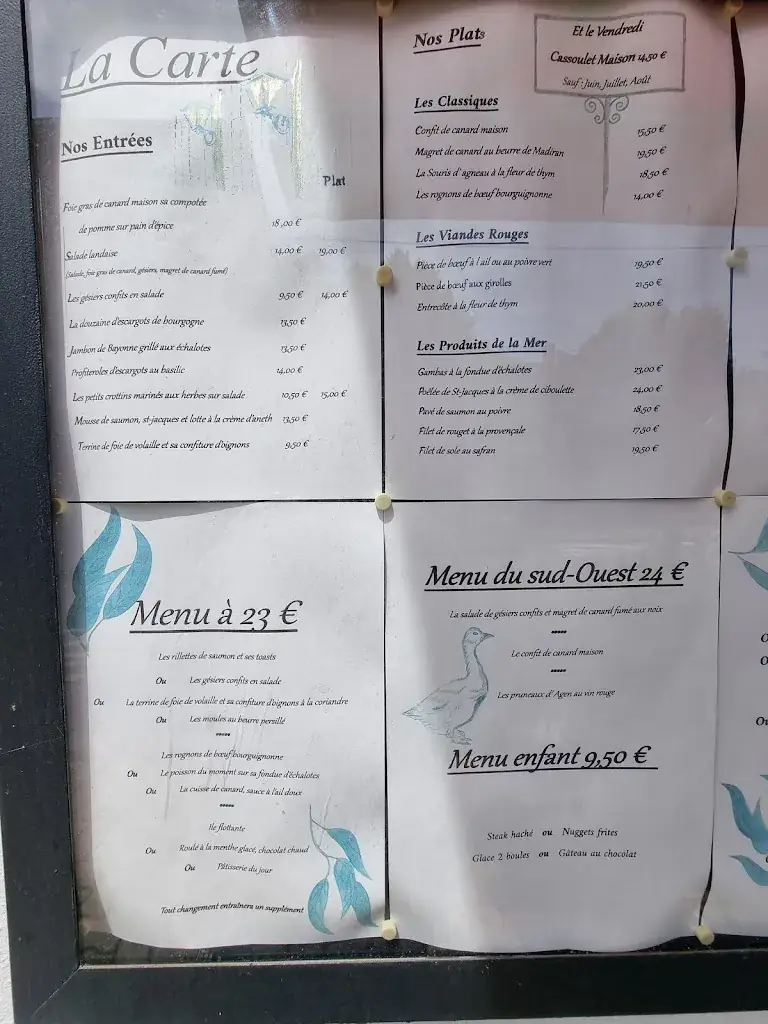 La Carte
Nos Entrées
Plat
Foie gras de canard maison sa compotée
de pomme sur pain d'épice 18,00 €
Salade landaise 14,00 € 19,00 €
(Salade, foie gras de canard, gésiers, magret de canard fumé)
Les gésiers confits en salade 9,50 € 14,00 €
La douzaine d'escargots de bourgogne 13,50 €
Jambon de Bayonne grillé aux échalotes 13,50 €
Profiteroles d'escargots au basilic 14,00 €
Les petits crottins marinés aux herbes sur salade 10,50 € 15,00 €
Mousse de saumon, st-jacques et lotte à la crème d'aneth 13,50 €
Terrine de foie de volaille et sa confiture d'oignons 9,50 €
Nos Plats
Et le Vendredi
Cassoulet Maison 14,50 €
Sauf : Juin, Juillet, Août
Les Classiques
Confit de canard maison 15,50 €
Magret de canard au beurre de Madiran 19,50 €
La Souris d'agneau à la fleur de thym 18,50 €
Les rognons de bœuf bourguignonne 14,00 €
Les Viandes Rouges
Pièce de bœuf à l'ail ou au poivre vert 19,50 €
Pièce de bœuf aux girolles 21,50 €
Entrecôte à la fleur de thym 20,00 €
Les Produits de la Mer
Gambas à la fondue d'échalotes 23,00 €
Poêlée de St-Jacques à la crème de ciboulette 24,00 €
Pavé de saumon au poivre 18,50 €
Filet de rouget à la provençale 17,50 €
Filet de sole au safran 19,50 €
Menu à 23 €
Les rillettes de saumon et ses toasts
Ou Les gésiers confits en salade
Ou La terrine de foie de volaille et sa confiture d'oignons à la coriandre
Ou Les moules au beurre persillé
*****
Les rognons de bœuf bourguignonne
Ou Le poisson du moment sur sa fondue d'échalotes
Ou La cuisse de canard, sauce à l'ail doux
*****
Ile flottante
Ou Roulé à la menthe glacé, chocolat chaud
Ou Pâtisserie du jour
Tout changement entraînera un supplément
Menu du sud-Ouest 24 €
La salade de gésiers confits et magret de canard fumé aux noix
*****
Le confit de canard maison
*****
Les pruneaux d'Agen au vin rouge
Menu enfant 9,50 €
Steak haché ou Nuggets frites
Glace 2 boules ou Gâteau au chocolat
Ou